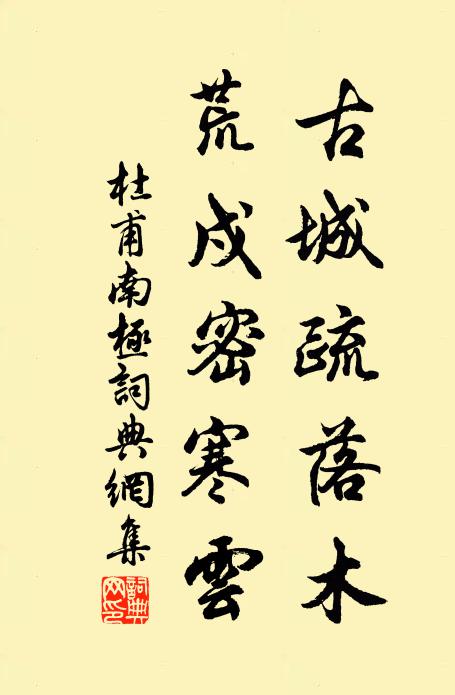 古城疏落木
荒戍密寒雲
杜甫南極詞典網集
詞典網印